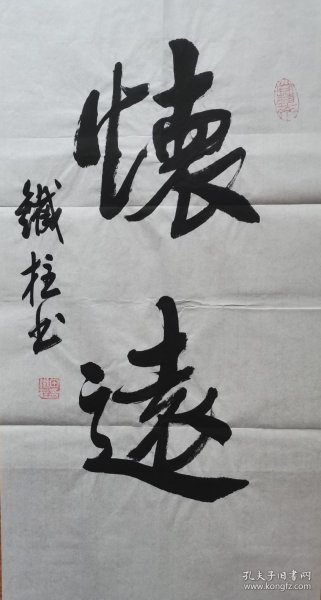 懷遠
鐵柱书
孔夫子旧书网
www.kongfz.com